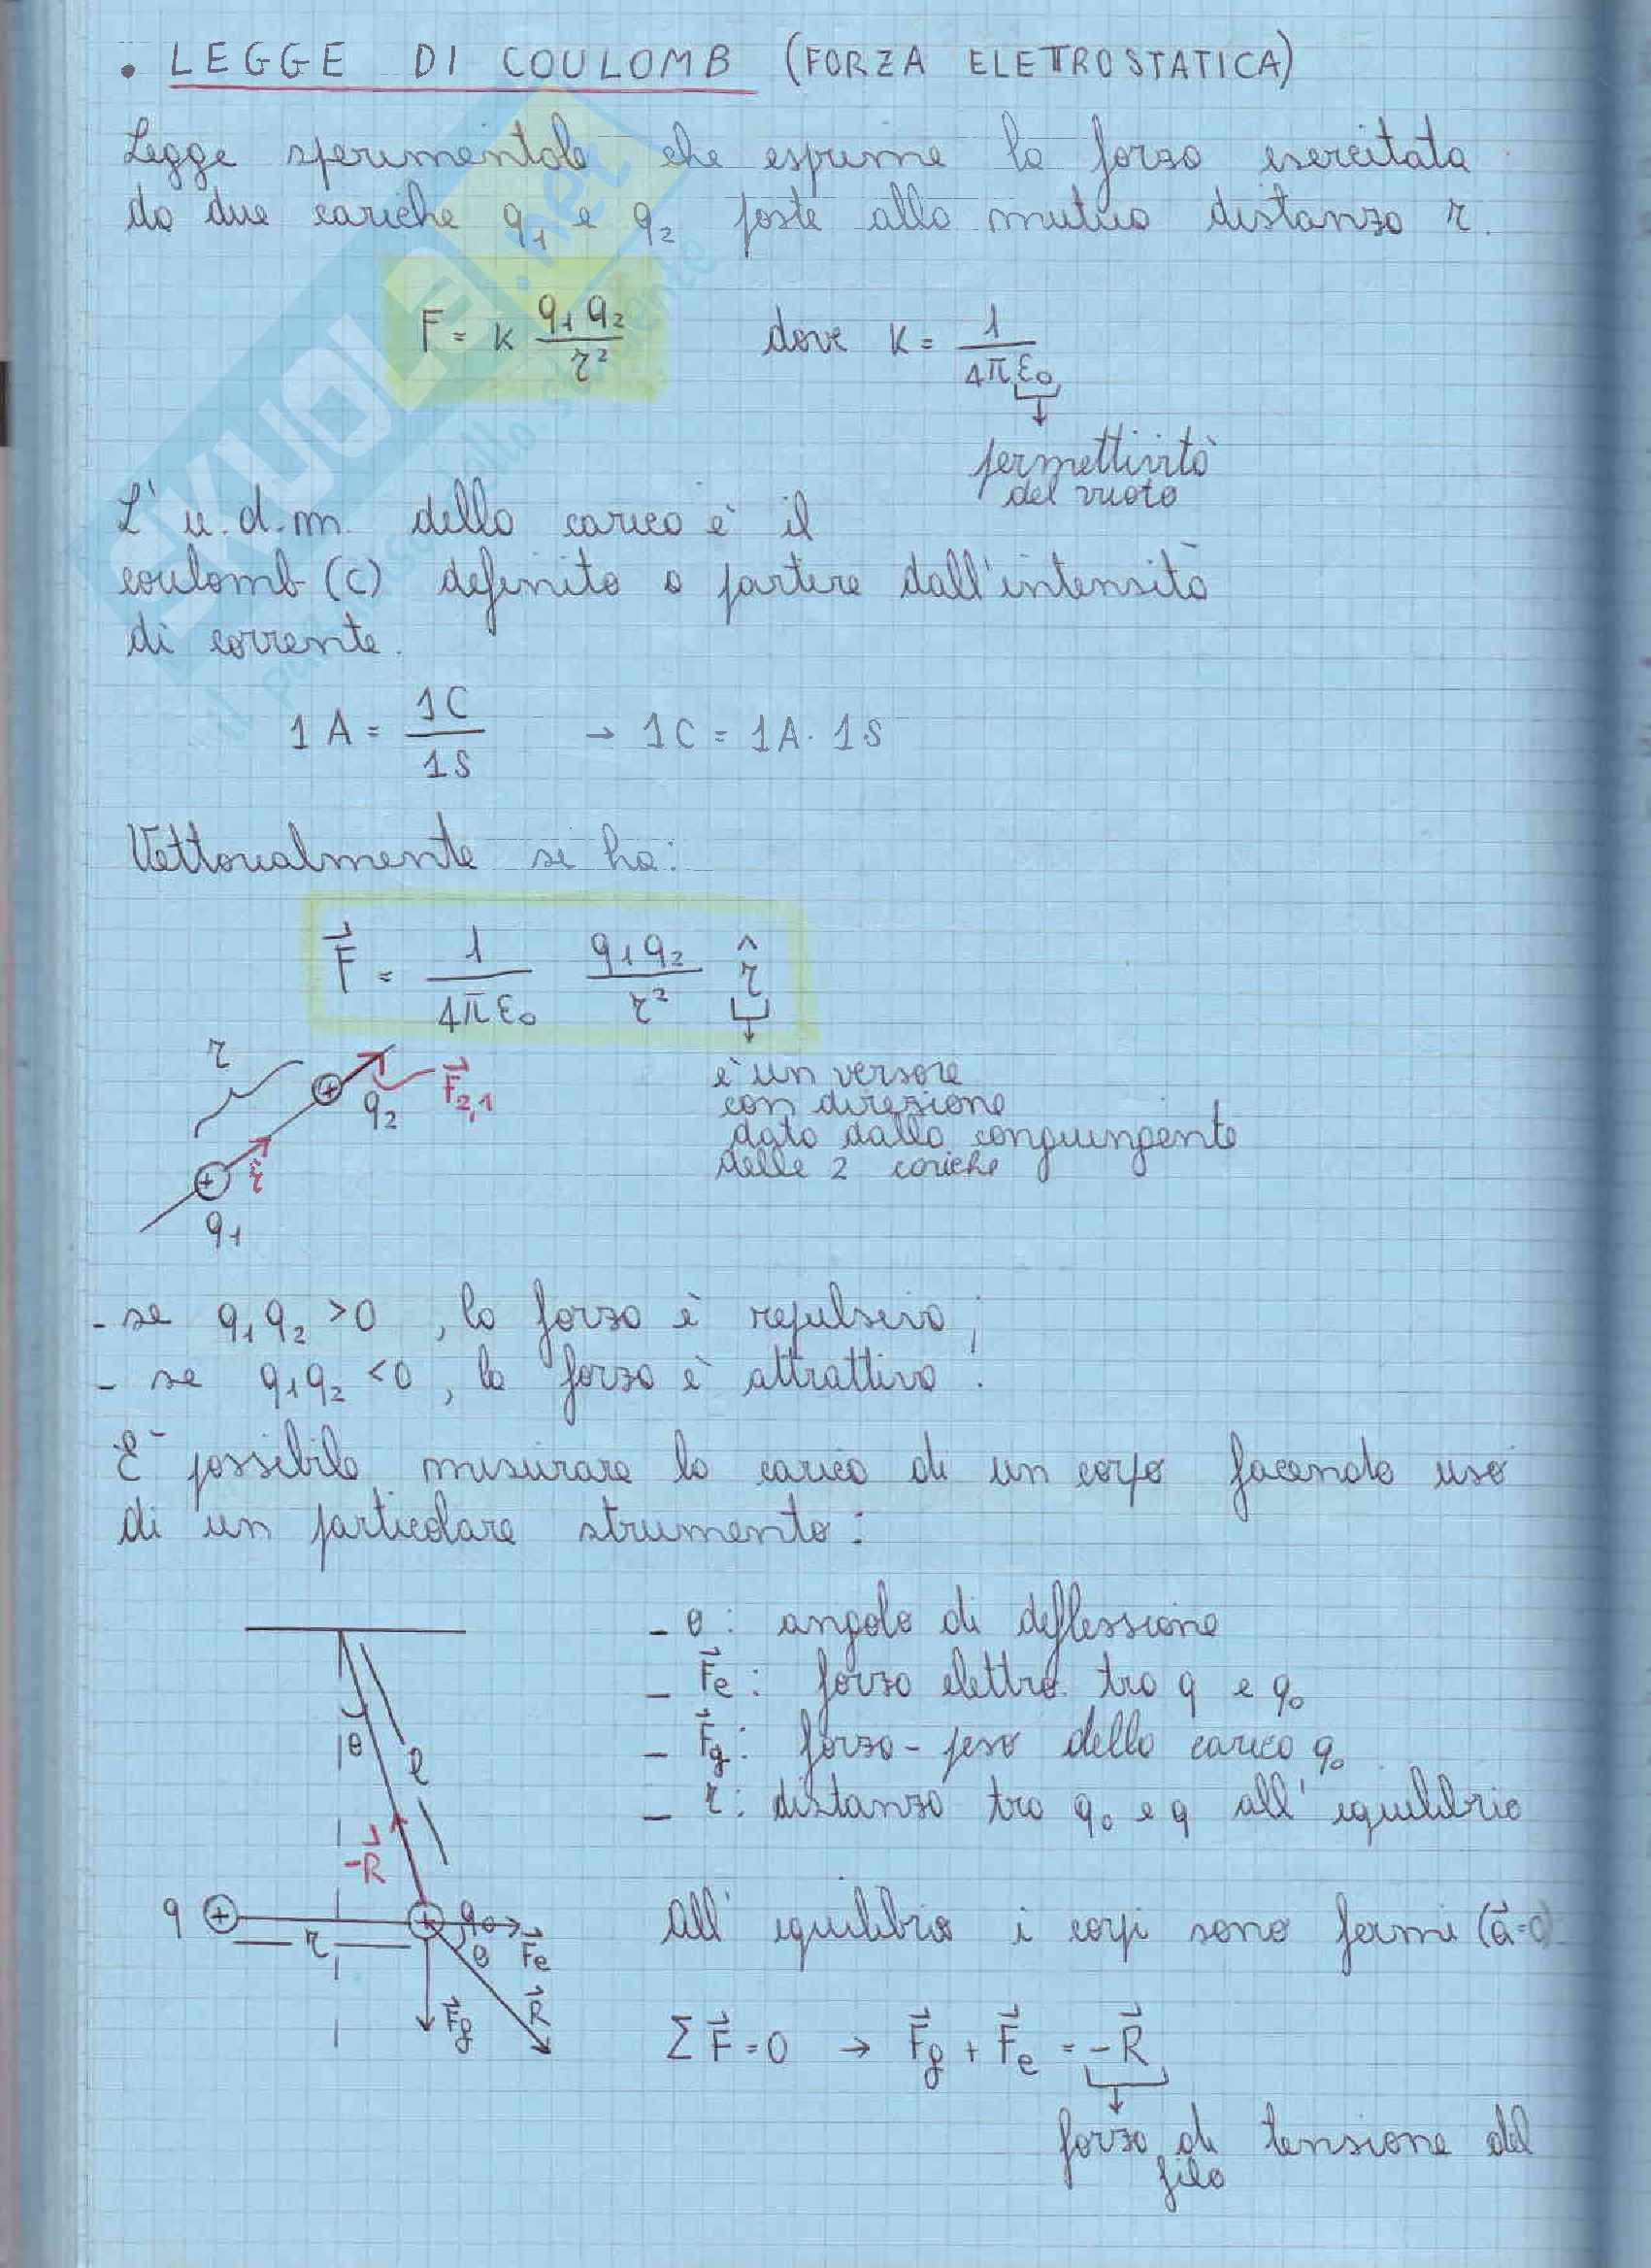 • LEGGE DI COULOMB (FORZA ELETTROSTATICA)
Legge sperimentale che esprime la forza esercitata
da due cariche q₁ e q₂ poste alla mutua distanza r.
F = K q₁q₂/r² dove K = 1/4πε₀
permettività
del vuoto
L'u.d.m. della carica è il
coulomb (C) definito a partire dall'intensità
di corrente.
1A = 1C/1S → 1C = 1A · 1S
Vettorialmente si ha:
F⃗ = 1/4πε₀ q₁q₂/r² r̂
è un versore
con direzione
data dalla congiungente
delle 2 cariche
r
q₂ F⃗₂,₁
r̂
q₁
- se q₁q₂ > 0, la forza è repulsiva;
- se q₁q₂ < 0, la forza è attrattiva.
È possibile misurare la carica di un corpo facendo uso
di un particolare strumento:
- θ: angolo di deflessione
- F⃗e: forza elettro. tra q e q₀
- F⃗g: forza-peso della carica q₀
- r: distanza tra q₀ e q all'equilibrio
θ l
-R⃗
q + r + q₀ F⃗e
θ
F⃗g R⃗
All'equilibrio i corpi sono fermi (a⃗=0)
ΣF⃗ = 0 → F⃗g + F⃗e = -R⃗
forza di tensione del
filo
SKUOLA.net